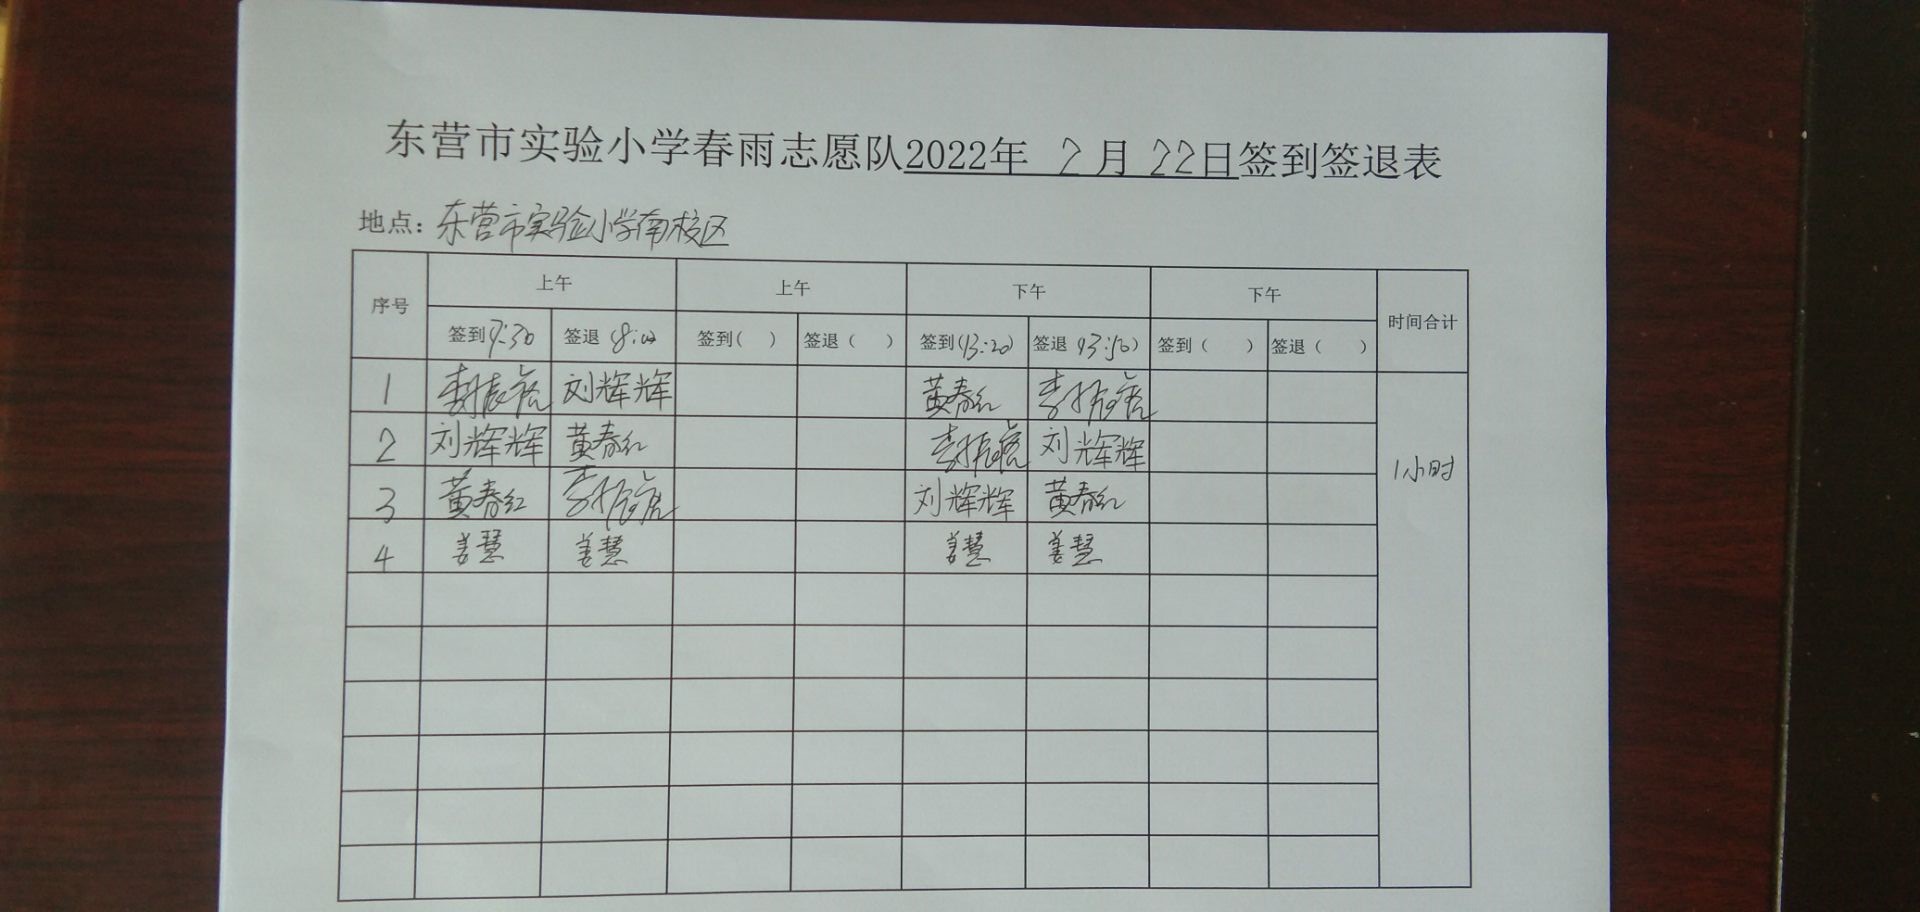 东营市实验小学春雨志愿队2022年 2 月 22日签到签退表
地点：东营市实验小学南校区
序号 上午 上午 下午 下午 时间合计
签到(7:30 签退(8:00 签到( ) 签退( ) 签到(13:20) 签退(13:50) 签到( ) 签退( )
1 刘辉辉 黄春红
2 刘辉辉 黄春红 刘辉辉 1小时
3 黄春红 刘辉辉 黄春红
4 姜慧 姜慧 姜慧 姜慧